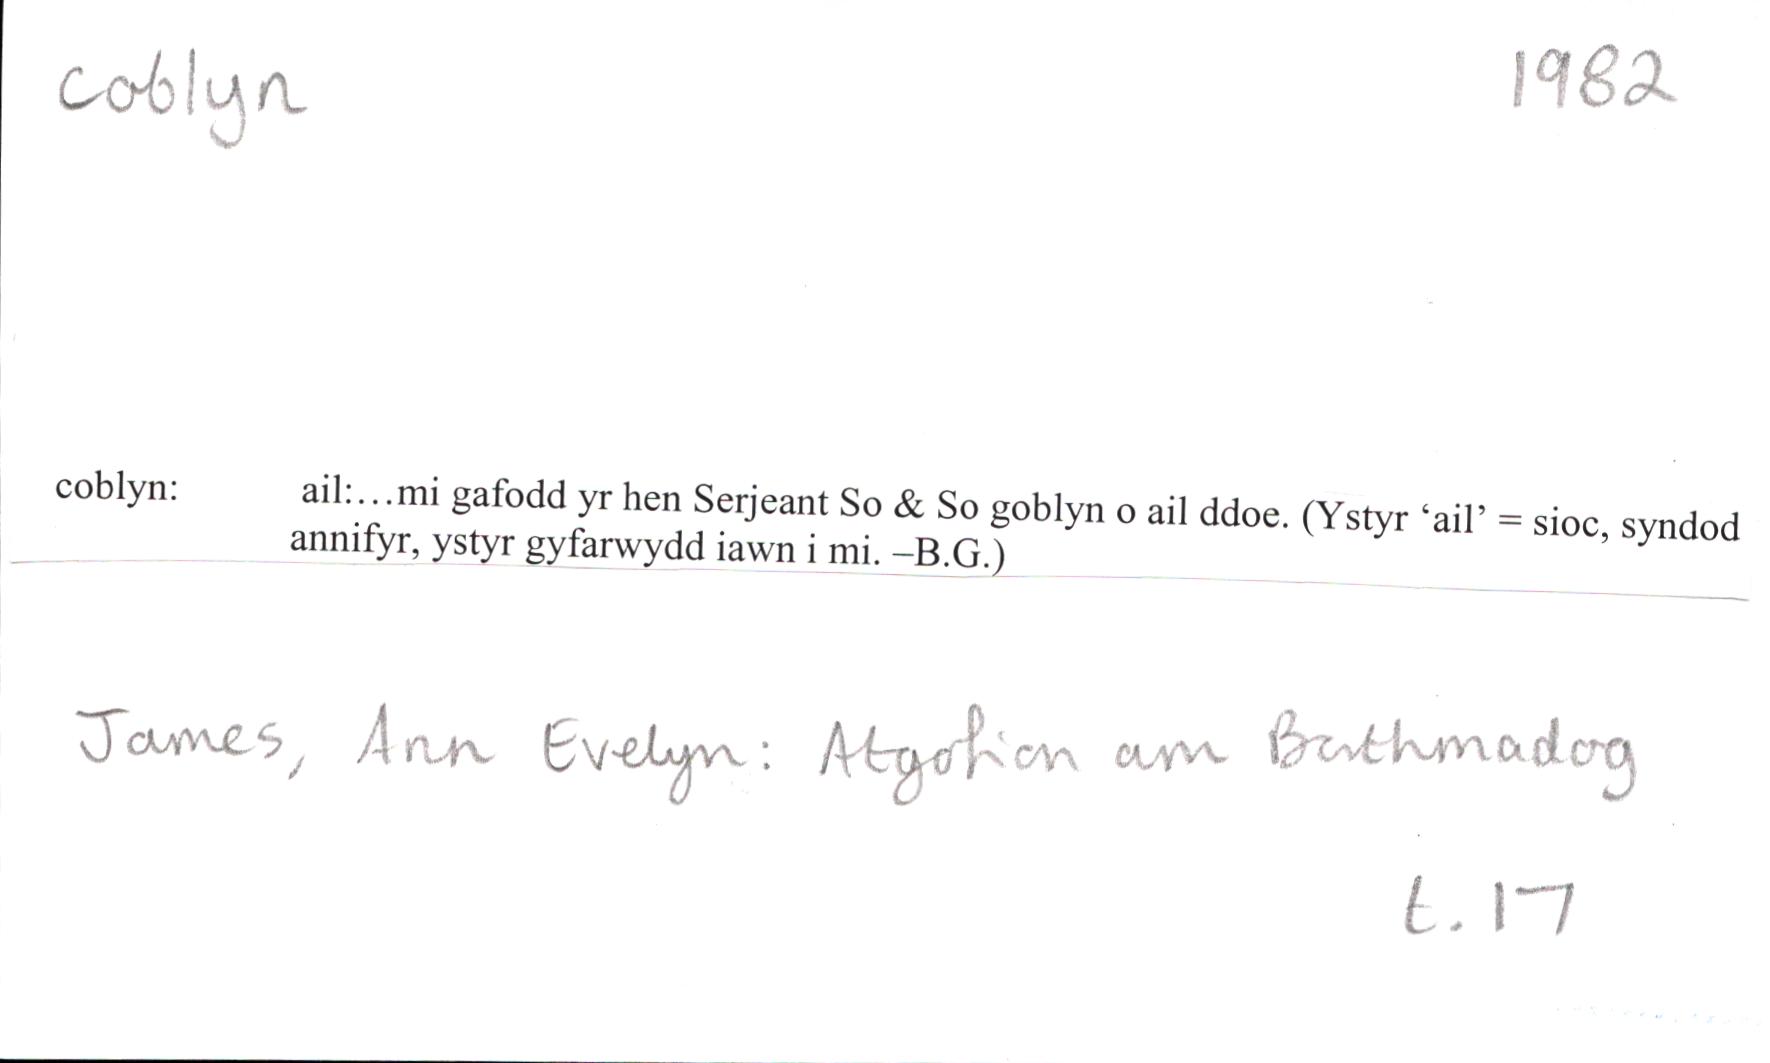 coblyn 1982
coblyn: ail:…mi gafodd yr hen Serjeant So & So goblyn o ail ddoe. (Ystyr ‘ail’ = sioc, syndod
annifyr, ystyr gyfarwydd iawn i mi. –B.G.)
James, Ann Evelyn: Atgofion am Borthmadog
t. 17